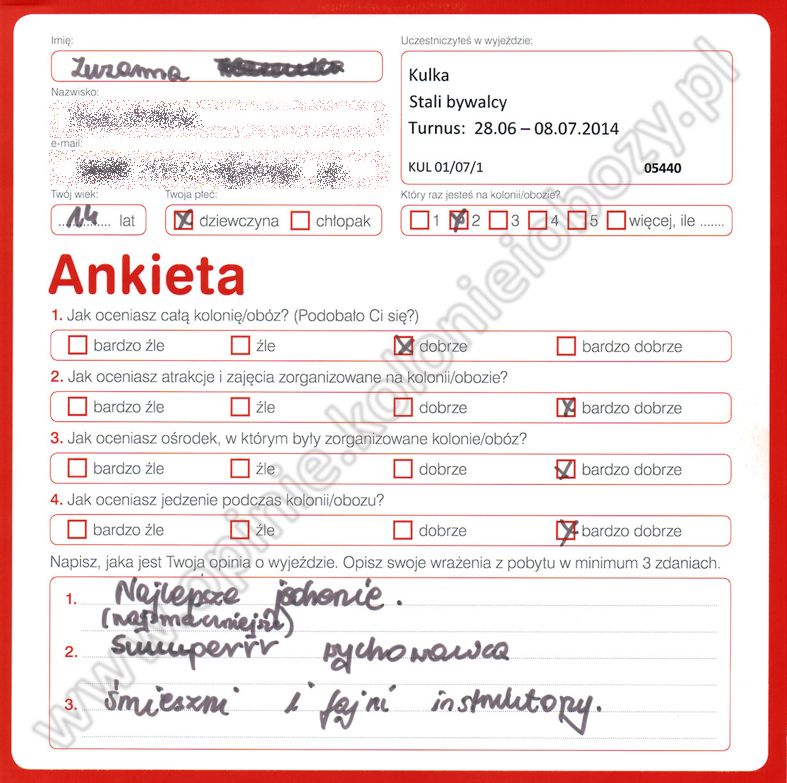 Imię:
Zuzanna
Uczestniczyłeś w wyjeździe:
Kulka
Stali bywalcy
Turnus: 28.06 – 08.07.2014
KUL 01/07/1 05440
Nazwisko:
e-mail:
Twój wiek:
14 lat
Twoja płeć:
dziewczyna chłopak
Który raz jesteś na kolonii/obozie?
1 2 3 4 5 więcej, ile .......
Ankieta
1. Jak oceniasz całą kolonię/obóz? (Podobało Ci się?)
bardzo źle źle dobrze bardzo dobrze
2. Jak oceniasz atrakcje i zajęcia zorganizowane na kolonii/obozie?
bardzo źle źle dobrze bardzo dobrze
3. Jak oceniasz ośrodek, w którym były zorganizowane kolonie/obóz?
bardzo źle źle dobrze bardzo dobrze
4. Jak oceniasz jedzenie podczas kolonii/obozu?
bardzo źle źle dobrze bardzo dobrze
Napisz, jaka jest Twoja opinia o wyjeździe. Opisz swoje wrażenia z pobytu w minimum 3 zdaniach.
1. Najlepsze jedzenie.
(najsmaczniejsze)
2. Suuuperrrr wychowawca
3. śmieszni i fajni instruktorzy.
www.opinie.kolonieiobozy.pl